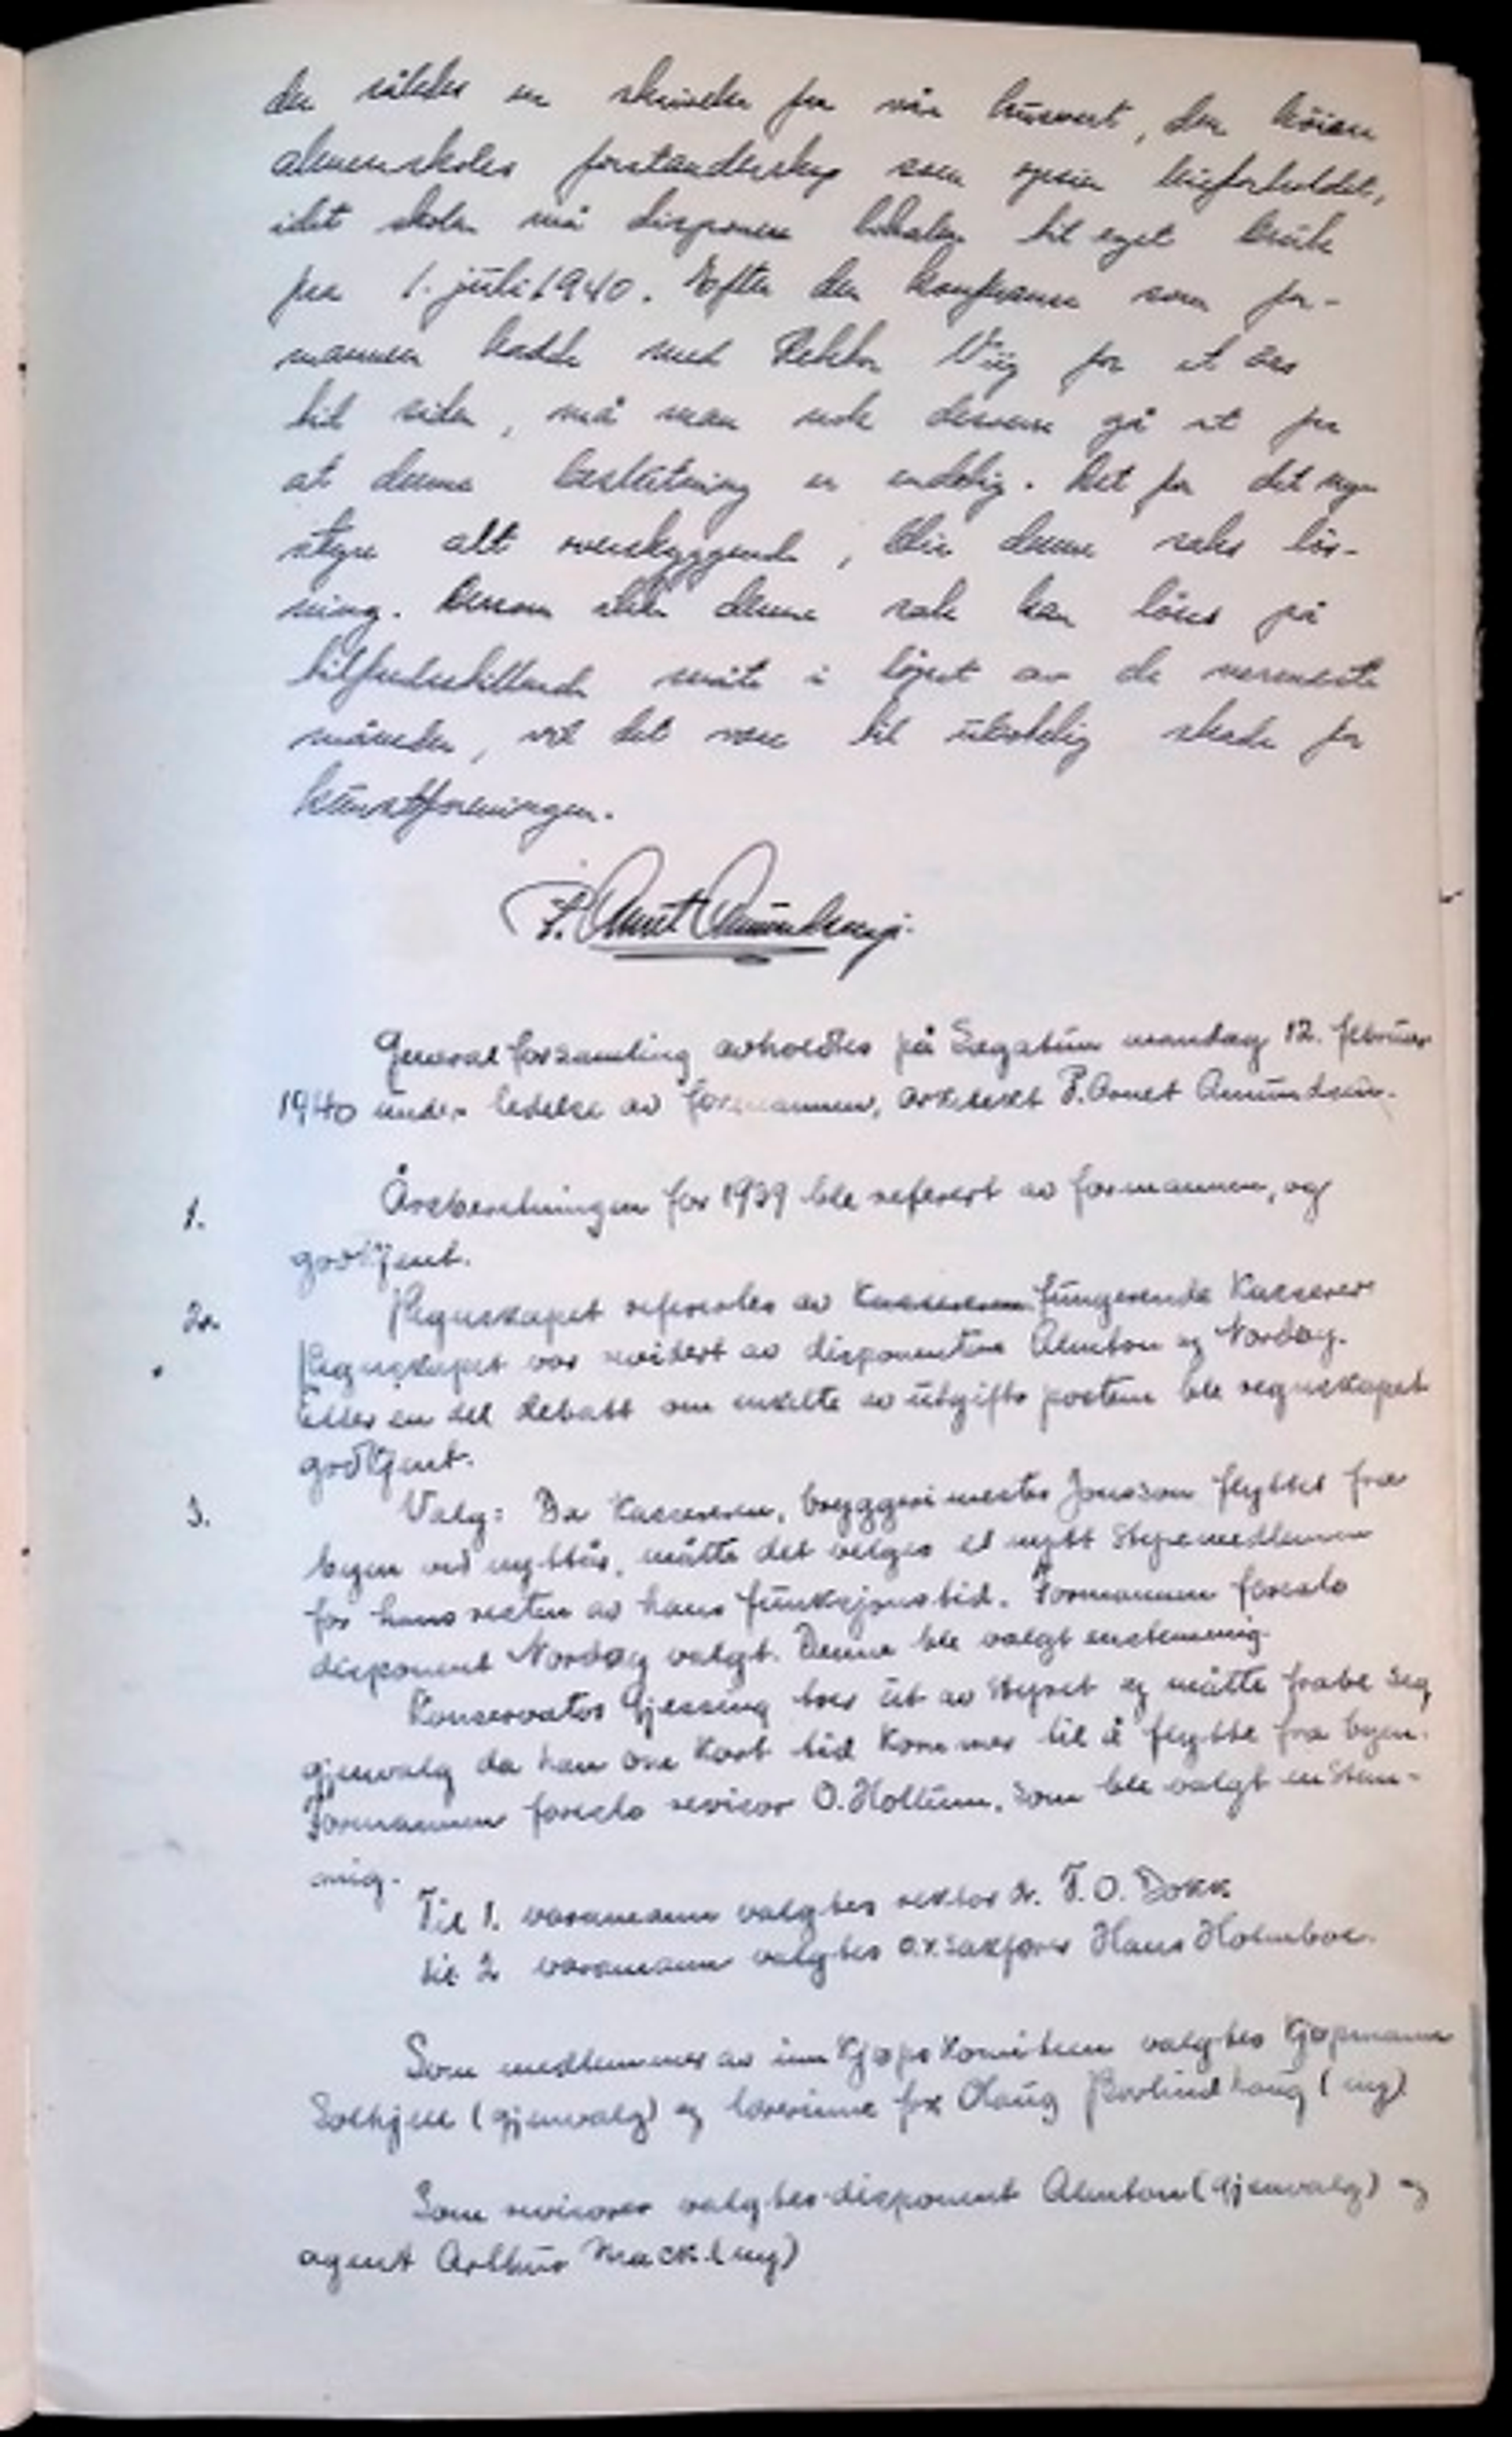 der såldes en skrivelse fra vår husvert, den höiere
almenskoles forstanderskap som opsier leieforholdet,
idet skolen må disponere lokalen til eget bruk
fra 1. juli 1940. Efter den konferanse som for-
mannen hadde med Rektor Viig for et års
tid siden, må man nok dessverre gå ut fra
at denne beslutning er endelig. Det for det nye
styre alt overskyggende, blir denne saks lös-
ning. Dersom ikke denne sak kan löses på
tilfredsstillende måte i löpet av de nærmeste
måneder, vil det være til ubotelig skade for
kunstforeningen.
P. Arnet Amundsen.
Generalforsamling avholdtes på Sagatun mandag 12. februar
1940 under ledelse av formannen, arkitekt P. Arnet Amundsen.
1. Årsberetningen for 1939 ble referert av formannen, og
godkjent.
2. Regnskapet referertes av Kassereren fungerende Kasserer
Regnskapet var revidert av disponentene Almton og Nordøy.
Etter en del debatt om enkelte av utgifts postene ble regnskapet
godkjent.
3. Valg: Da Kassereren, bryggerimester Jonsson flyttet fra
byen ved nyttår, måtte det velges et nytt styremedlem
for hans resten av hans funksjonstid. Formannen foreslo
disponent Nordøy valgt. Denne ble valgt enstemmig.
Konservator Gjessing trer ut av styret og måtte frabe seg
gjenvalg da han om Kort tid Kommer til å flytte fra byen.
Formannen foreslo revisor O. Hollum, som ble valgt enstem-
mig.
Til 1. varamann valgtes rektor dr. F. O. Dokk
til 2 varamann valgtes o.r.sakfører Hans Holmboe.
Som medlemmer av innKjøpsKomiteen valgtes Kjøpmann
Solhjell (gjenvalg) og lærerinne frk Olaug Barlindhaug (ny)
Som revisorer valgtes disponent Almton (gjenvalg) og
agent Arthur Mack. (ny)